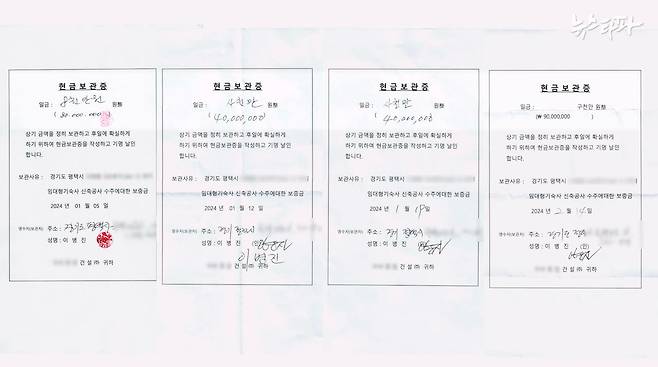 뉴스타파
현금보관증
일금 : 팔천만원 원整
( 80.000.000 )
상기 금액을 정히 보관하고 후일에 확실하게
하기 위하여 현금보관증을 작성하고 기명 날인
합니다.
보관사유 : 경기도 평택시
임대형기숙사 신축공사 수주에대한 보증금
2024 년 01 월 05 일
영수자(보관자) 주소 : 경기도 평택시
성명 : 이 병 진
건 설 ㈜ 귀하
현금보관증
일금 : 사천만 원整
( 40,000,000 )
상기 금액을 정히 보관하고 후일에 확실하게
하기 위하여 현금보관증을 작성하고 기명 날인
합니다.
보관사유 : 경기도 평택시
임대형기숙사 신축공사 수주에대한 보증금
2024 년 01 월 12 일
영수자(보관자) 주소 : 경기 평택시
성명 : 이 병 진 (인)
이병진
건 설 ㈜ 귀하
현금보관증
일금 : 사천만 원整
( 40,000,000 )
상기 금액을 정히 보관하고 후일에 확실하게
하기 위하여 현금보관증을 작성하고 기명 날인
합니다.
보관사유 : 경기도 평택시
임대형기숙사 신축공사 수주에대한 보증금
2024 년 1 월 19 일
영수자(보관자) 주소 : 경기 평택시
성명 : 이 병 진 (인)
건 설 ㈜ 귀하
현금보관증
일금 : 구천만 원整
(₩ 90,000,000 )
상기 금액을 정히 보관하고 후일에 확실하게
하기 위하여 현금보관증을 작성하고 기명 날인
합니다.
보관사유 : 경기도 평택시
임대형기숙사 신축공사 수주에대한 보증금
2024 년 2 월 14 일
영수자(보관자) 주소 : 경기도
성명 : 이 병 진 (인)
건 설 ㈜ 귀하